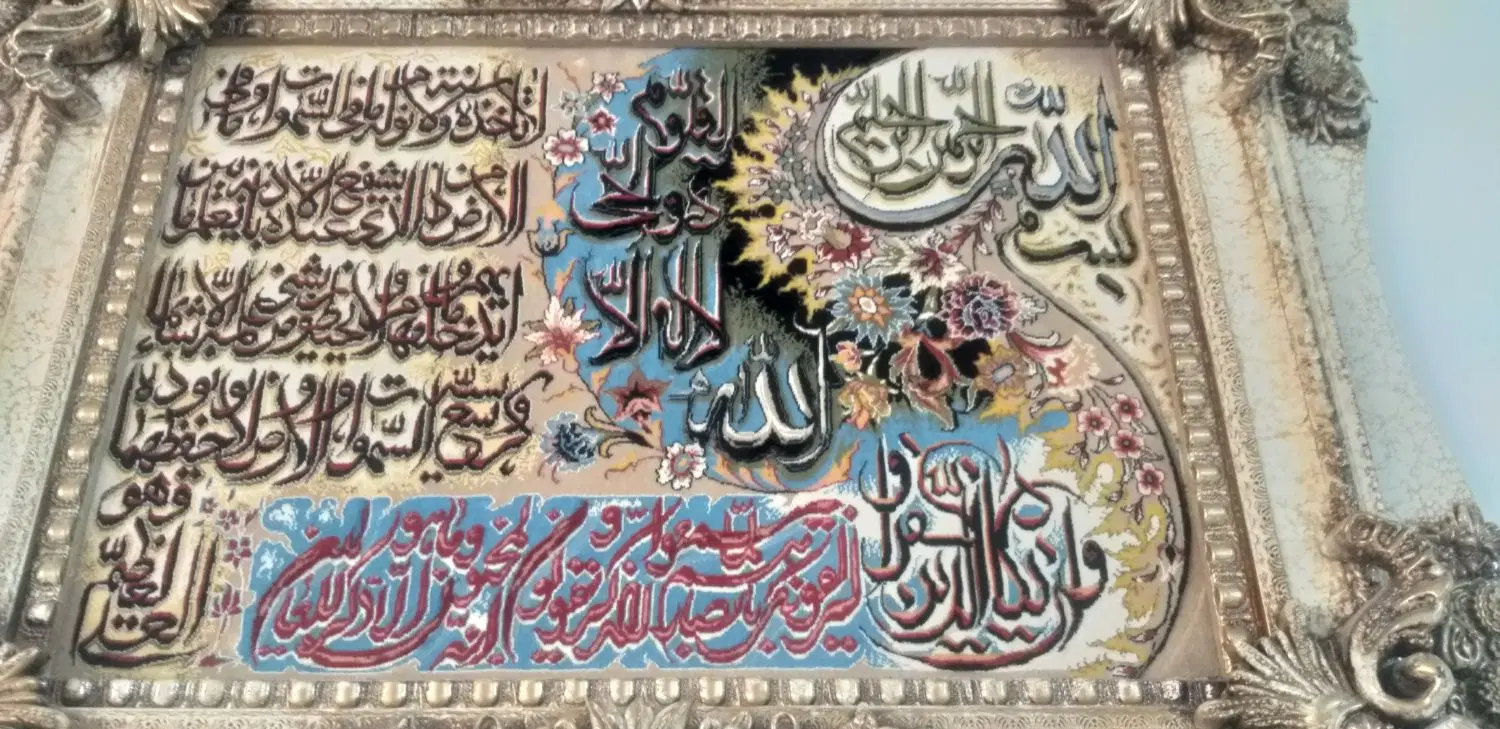 بسم الله الرحمن الرحيم
الله
لا اله الا
هو الحي
القيوم
لا تأخذه سنة ولا نوم له ما في السموات وما في
الارض من ذا الذي يشفع عنده الا باذنه يعلم ما بين
ايديهم وما خلفهم ولا يحيطون بشيء من علمه الا بما شاء
وسع كرسيه السموات والارض ولا يؤده حفظهما
وهو
العلي العظيم
وان يكاد الذين كفروا
ليزلقونك بابصارهم لما سمعوا الذكر ويقولون انه لمجنون وما هو الا ذكر للعالمين